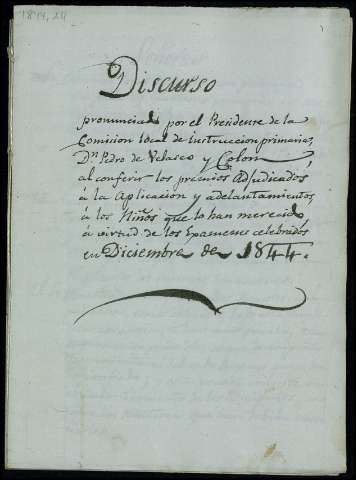 1844, 211
Discurso
pronunciado por el Presidente de la
Comision local de instruccion primaria,
Dn. Pedro de Velasco y Colon,
al conferir los premios adjudicados
á la Aplicacion y adelantamientos,
á los Niños que lo han merecido
á virtud de los Examenes celebrados
en Diciembre de 1844.